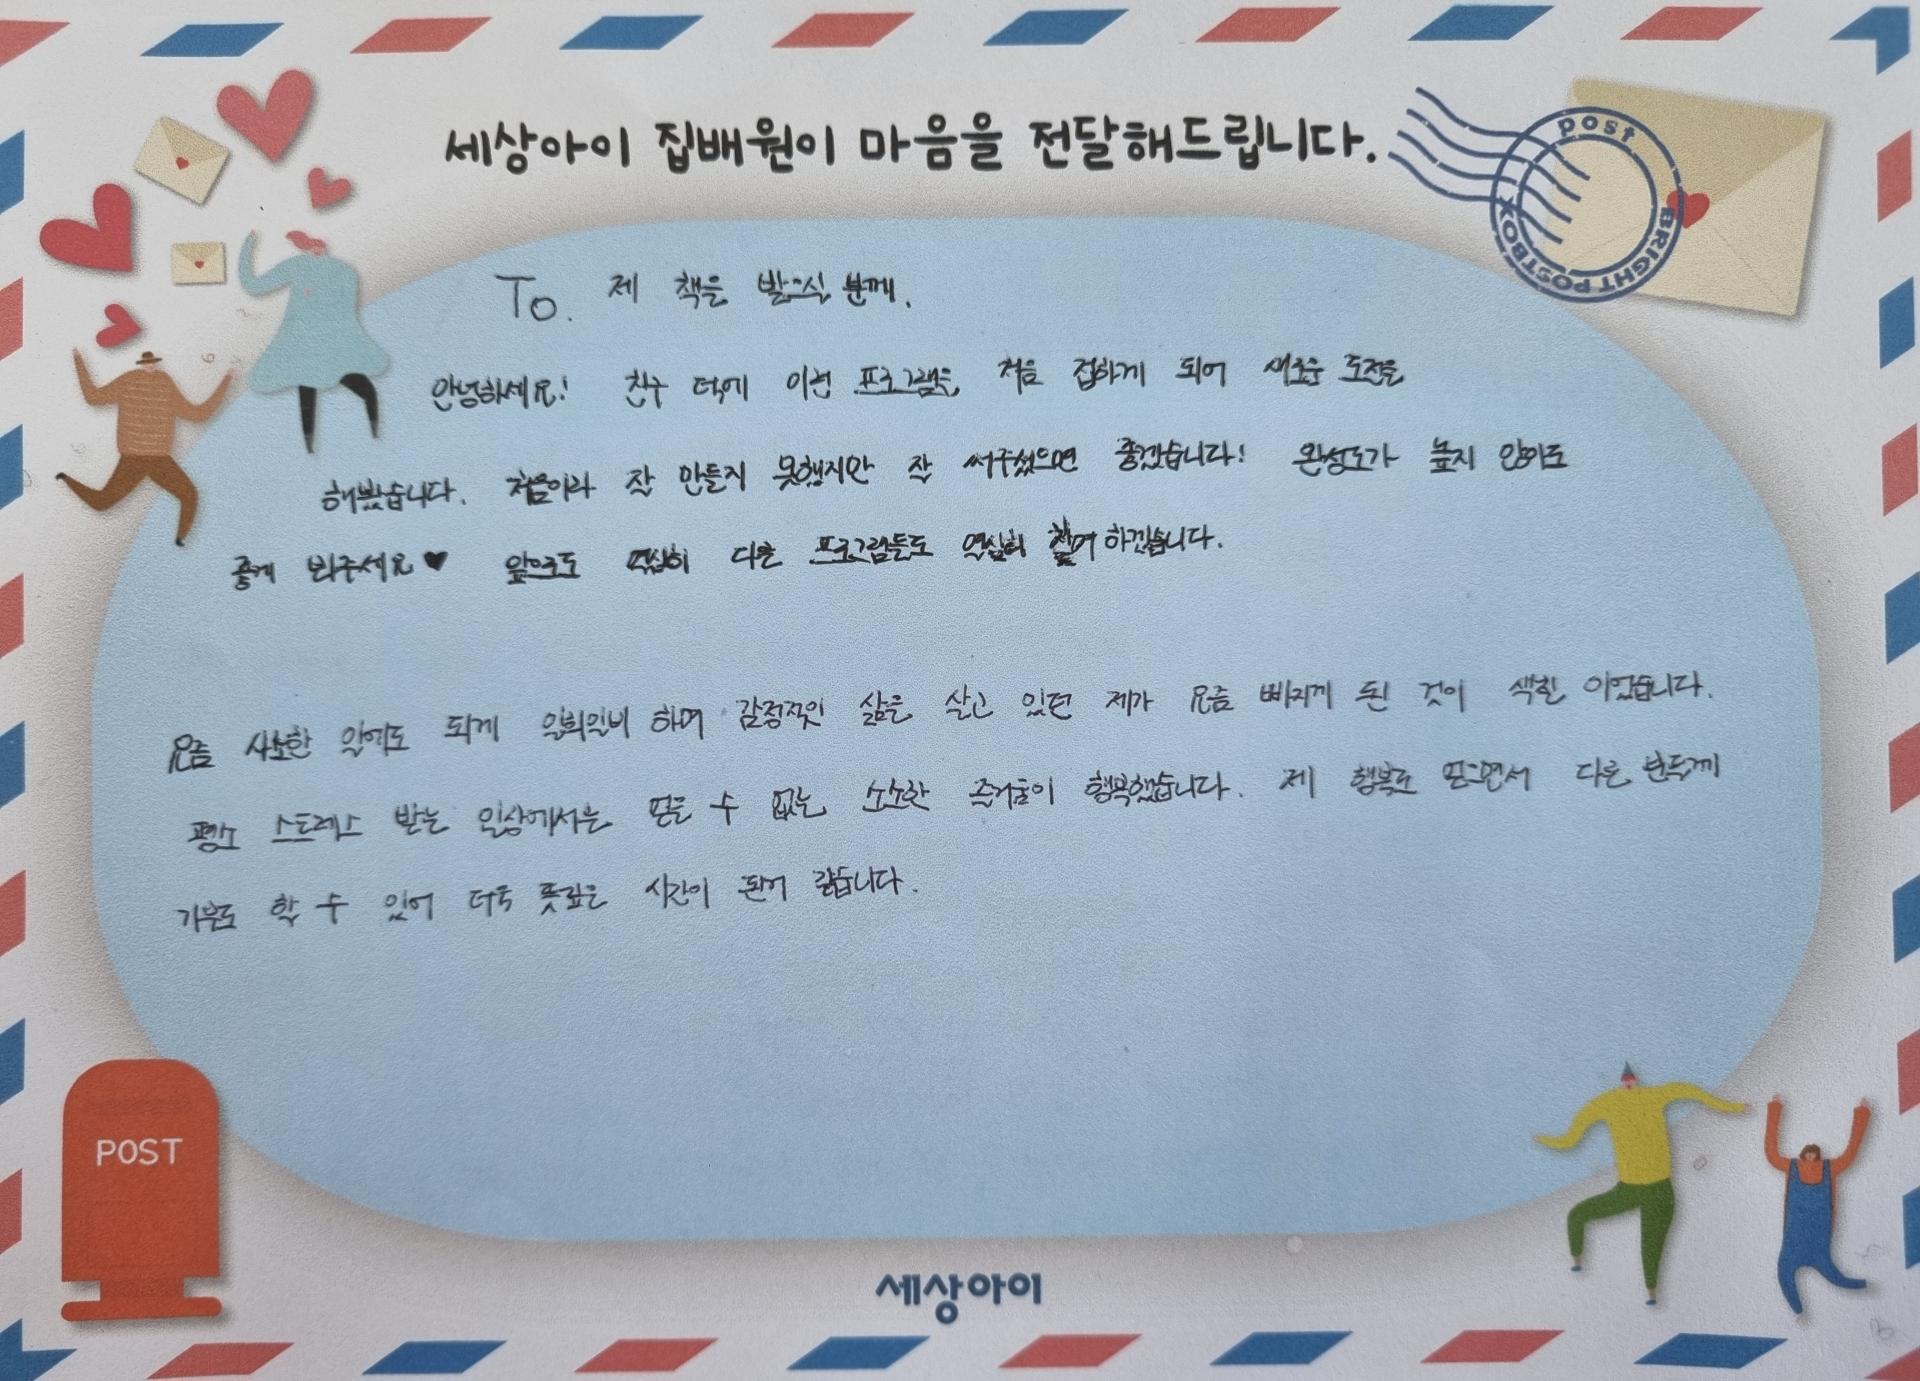 세상아이 집배원이 마음을 전달해드립니다.
post
BRIGHT POSTBOX
To. 제 책을 받으실 분께.
안녕하세요! 친구 덕에 이런 프로그램을 처음 접하게 되어 새로운 도전을
해봤습니다. 처음이라 잘 만들지 못했지만 잘 써주셨으면 좋겠습니다! 완성도가 높지 않아도
좋게 봐주세요♥ 앞으로도 열심히 다른 프로그램들도 열심히 참여하겠습니다.
요즘 사소한 일에도 되게 일희일비 하며 감정적인 삶을 살고 있던 제가 요즘 빠지게 된 것이 색칠 이었습니다.
평소 스트레스 받는 일상에서는 얻을 수 없는 소소한 즐거움이 행복했습니다. 제 행복도 얻으면서 다른 분들께
기부도 할 수 있어 더욱 뜻깊은 시간이 된거 같습니다.
POST
세상아이